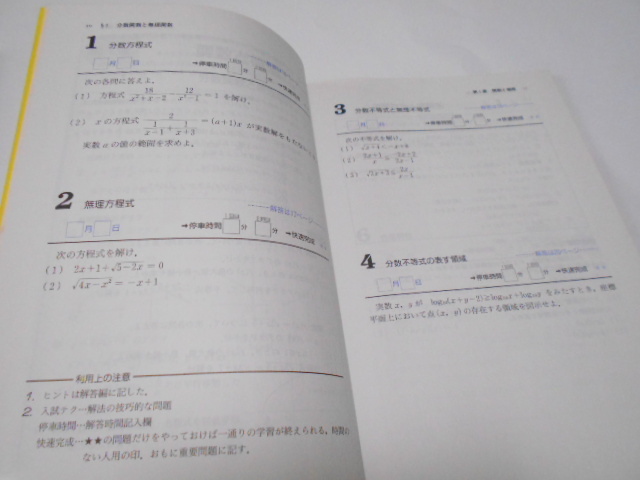 分数関数と無理関数
1 分数方程式
月 日
→停車時間 分 分 →快速完成
次の各問に答えよ.
(1) 方程式 18/(x²+x−2) − 12/(x²−1) = 1 を解け.
(2) xの方程式 2/(1/(x−1)+1/(x+3)) = (a+1)x が実数解をもたない
実数aの値の範囲を求めよ.
2 無理方程式
月 日
→停車時間 分 分 →快速完成
次の方程式を解け.
(1) 2x+1+√(5−2x)=0
(2) √(4x−x²)=−x+1
利用上の注意
1. ヒントは解答編に記した.
2 入試テクー解法の技巧的な問題
停車時間…解答時間記入欄
快速完成…★★の問題だけをやっておけば一通りの学習が終えられる. 時間の
ない人用の印. おもに重要問題に記す.
3 分数不等式と無理不等式
月 日
→停車時間 分 分 →快速完成
次の不等式を解け.
(1)
(2)
(3)
4 分数不等式の表す領域
月 日
→停車時間 分 分 →快速完成
実数x, yが log₁₀(x+y−2)≧log₁₀x+log₁₀y をみたすとき, 座標
平面上において点(x, y)の存在する領域を図示せよ.